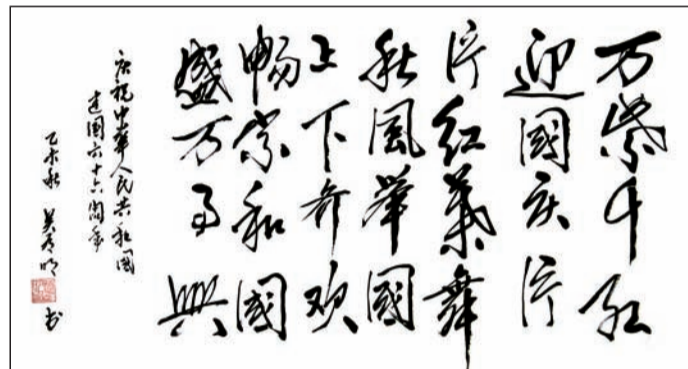 万紫千红
迎國庆片
片红葉舞
秋風舉國
上下齐欢
畅家和國
盛万事興
庆祝中華人民共和國
建國六十六周年
乙未秋 吴明 书